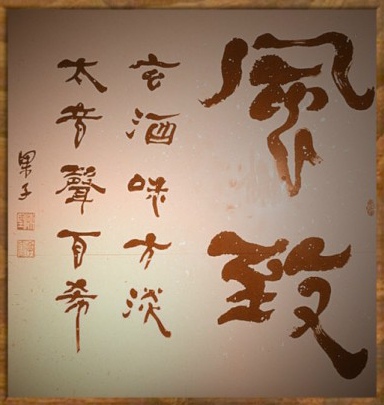 風致
玄酒味方淡
太音聲希
果子